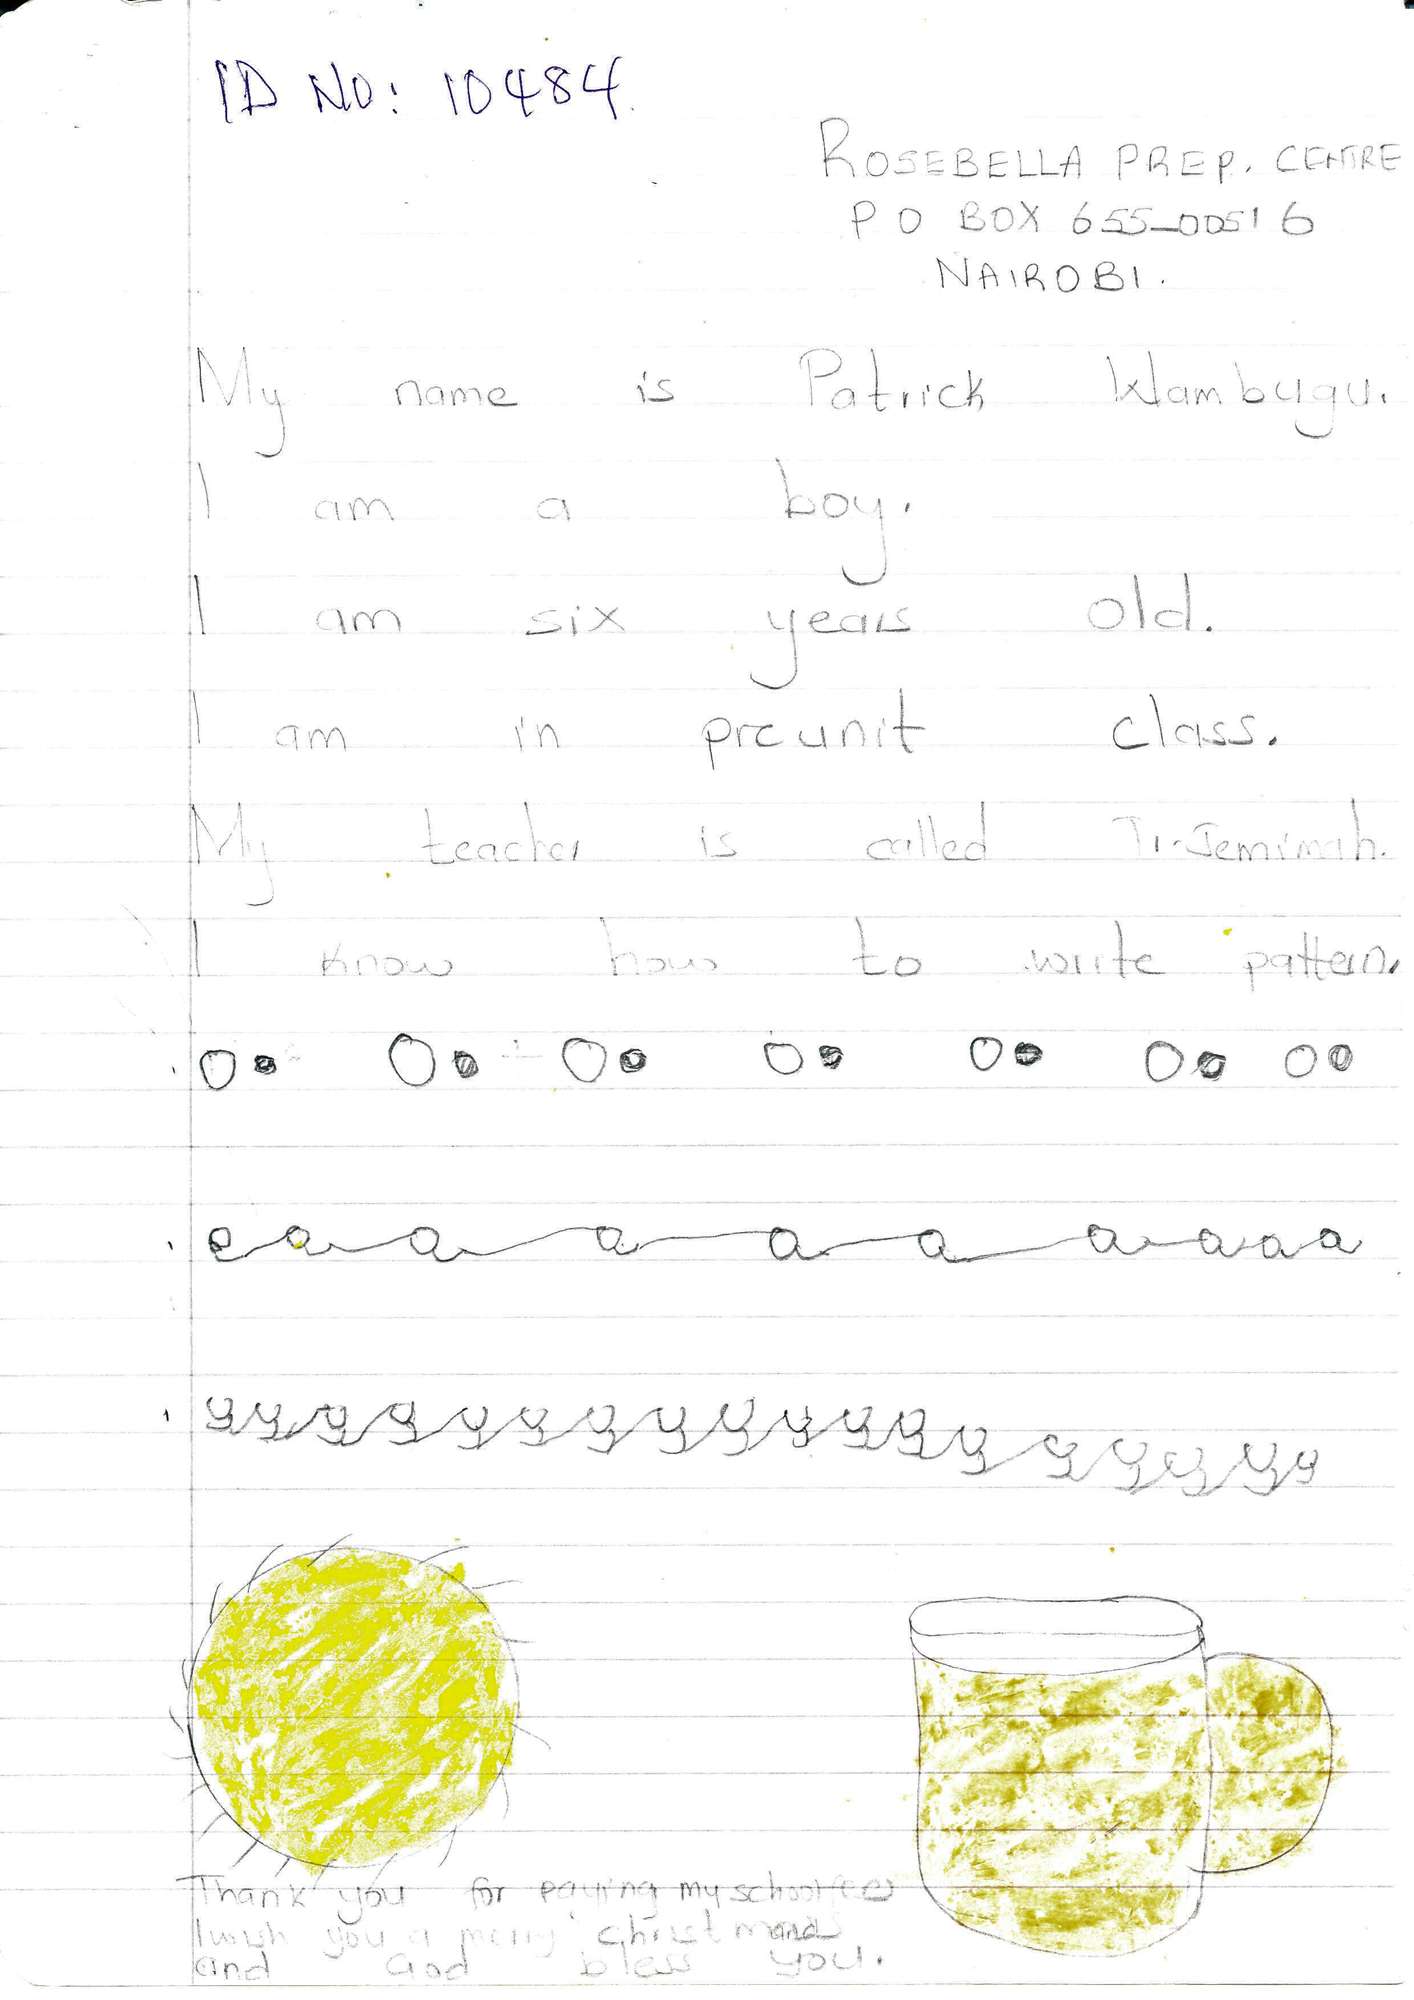 ID NO: 10484
ROSEBELLA PREP. CENTRE
P O BOX 655-00516
NAIROBI.
My name is Patrick Wambugu.
I am a boy.
I am six years old.
I am in preunit class.
My teacher is called Tr. Jemimah.
I know how to write pattern.
a a a a a a a a a a
y y y y y y y y y y y y y y y y y y
Thank you for paying my school fees
I wish you a merry christmas
and God bless you.